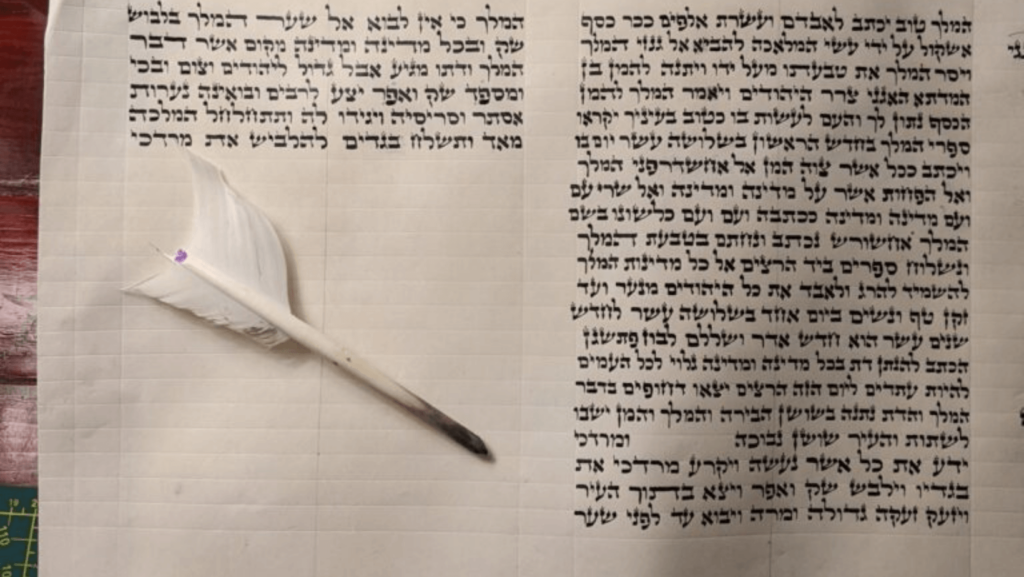 המלך טוב יכתב לאבדם ועשרת אלפים ככר כסף
אשקול על ידי עשי המלאכה להביא אל גנזי המלך
ויסר המלך את טבעתו מעל ידו ויתנה להמן בן
המדתא האגגי צרר היהודים ויאמר המלך להמן
הכסף נתון לך והעם לעשות בו כטוב בעיניך יקראו
ספרי המלך בחדש הראשון בשלושה עשר יום בו
ויכתב ככל אשר צוה המן אל אחשדרפני המלך
ואל הפחות אשר על מדינה ומדינה ואל שרי עם
ועם מדינה ומדינה ככתבה ועם ועם כלשונו בשם
המלך אחשורש נכתב ונחתם בטבעת המלך
ונשלוח ספרים ביד הרצים אל כל מדינות המלך
להשמיד להרג ולאבד את כל היהודים מנער ועד
זקן טף ונשים ביום אחד בשלושה עשר לחדש
שנים עשר הוא חדש אדר ושללם לבוז פתשגן
הכתב להנתן דת בכל מדינה ומדינה גלוי לכל העמים
להיות עתדים ליום הזה הרצים יצאו דחופים בדבר
המלך והדת נתנה בשושן הבירה והמלך והמן ישבו
לשתות והעיר שושן נבוכה ומרדכי
ידע את כל אשר נעשה ויקרע מרדכי את
בגדיו וילבש שק ואפר ויצא בתוך העיר
ויזעק זעקה גדולה ומרה ויבוא עד לפני שער
המלך כי אין לבוא אל שער המלך בלבוש
שק ובכל מדינה ומדינה מקום אשר דבר
המלך ודתו מגיע אבל גדול ליהודים וצום ובכי
ומספד שק ואפר יצע לרבים ותבואינה נערות
אסתר וסריסיה ויגידו לה ותתחלחל המלכה
מאד ותשלח בגדים להלביש את מרדכי